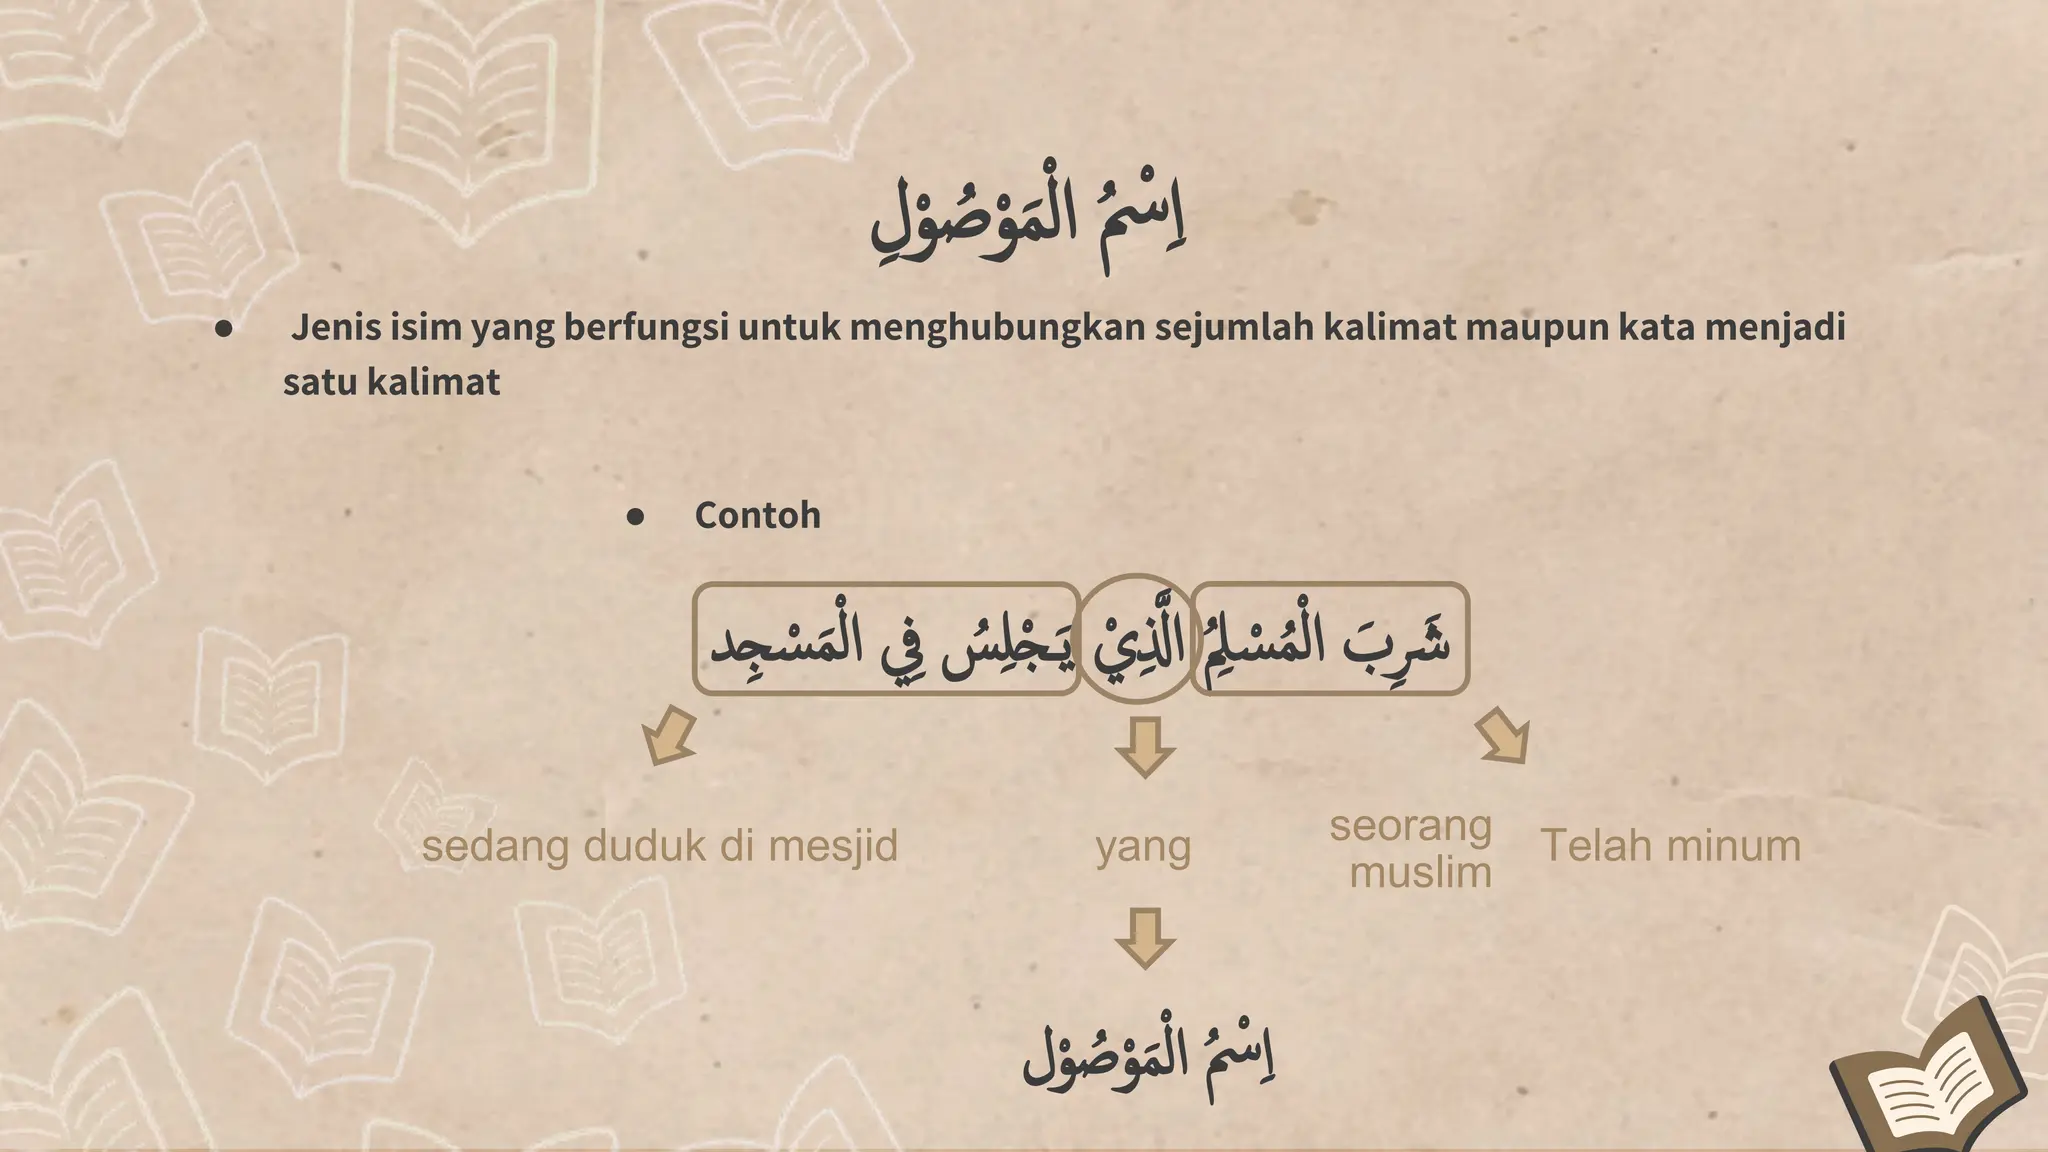 اِسْمُ الْمَوْصُوْلِ
● Jenis isim yang berfungsi untuk menghubungkan sejumlah kalimat maupun kata menjadi
satu kalimat
● Contoh
شَرِبَ الْمُسْلِمُ الَّذِيْ يَجْلِسُ فِي الْمَسْجِد
sedang duduk di mesjid
yang
seorang
muslim
Telah minum
اِسْمُ الْمَوْصُوْل